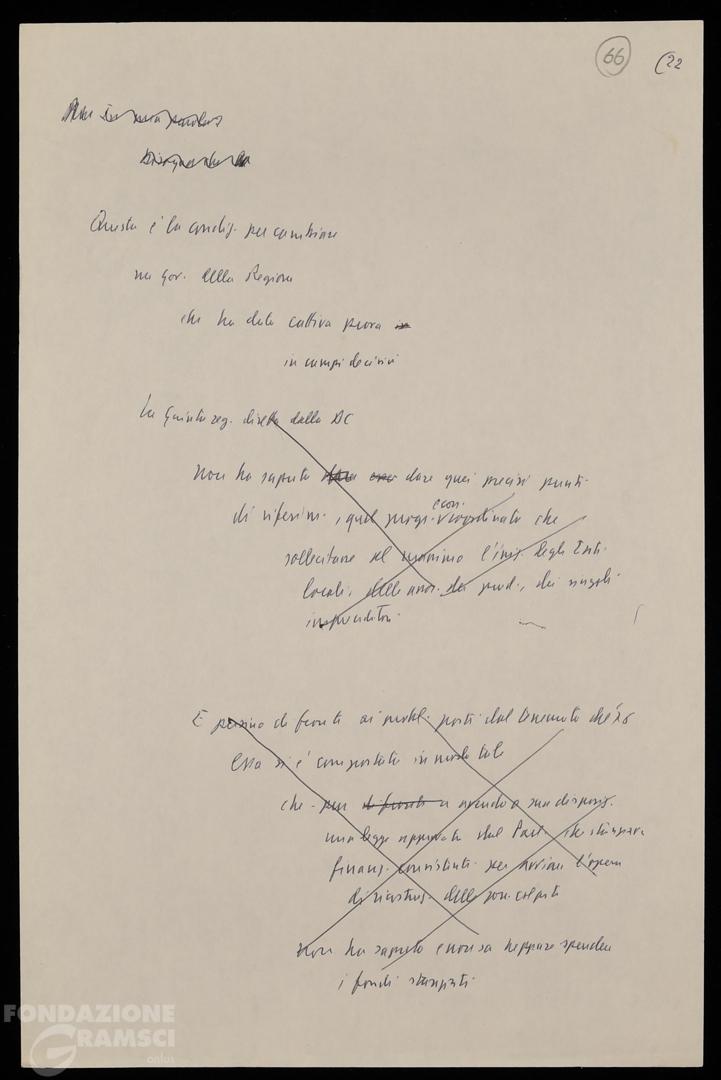 66 (22
Questa è la condiz. per cambiare
un gov. della Regione
che ha dato cattiva prova in
in campi decisivi
La Giunta reg. diretta dalla DC
Non ha saputo dare quei precisi punti
di riferim., quel progr. econ. coordinato che
sollecitasse al massimo l'iniz. degli Enti
locali, delle assoc. dei prod., dei singoli
imprenditori
E persino di fronte ai probl. posti dal terremoto del '76
essa si è comportata in modo tale
che - pur di fronte a avendo a sua disposiz.
una legge approvata dal Parl. che stanzia
finanz. consistenti per avviare l'opera
di ricostruz. delle zone colpite
Non ha saputo e non sa neppure spendere
i fondi stanziati
FONDAZIONE
GRAMSCI
onlus